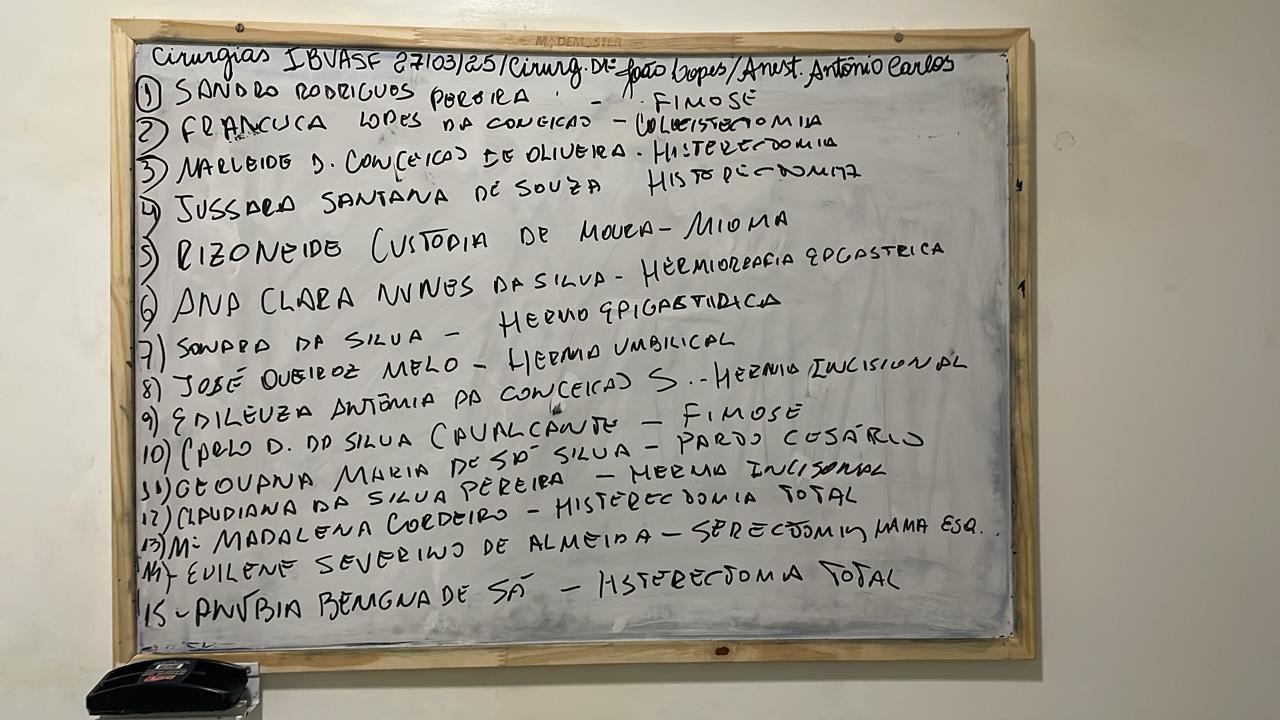 MADEMASTER
Cirurgias IBVASF 27/03/25/Cirurg. Dr: João Lopes/Anest. Antônio Carlos
1) SANDRO RODRIGUES PEREIRA - FIMOSE
2) LOPES DA CONCEICAO - COLECISTECTOMIA
3) MARLEIDE D. CONCEICAO DE OLIVEIRA. HISTERECTOMIA
4) JUSSARA SANTANA DE SOUZA
5) RIZONEIDE CUSTÓDIA DE MOURA - MIOMA
6) ANA CLARA NUNES DA SILVA - EPGASTRICA
7) DA SILVA - HERNIO
8) JOSÉ QUEIROZ MELO - HERNIA UMBILICAL
9) EDILEUZA ANTÔNIA DA CONCEICAO S.. - HERNIA INCISIONAL
10) D. DA SILVA CAVALCANTE - FIMOSE
11) GEOVANA MARIA DE SÁ SILVA - CESÁRIO
12) CLAUDIANA DA SILVA PEREIRA - HERNIA
13) Mª MADALENA CORDEIRO - HISTERECDOMIA TOTAL
14) - SEVERINO DE ALMEIDA - MAMA ESQ..
15 - BENIGNA DE SÁ - TOTAL